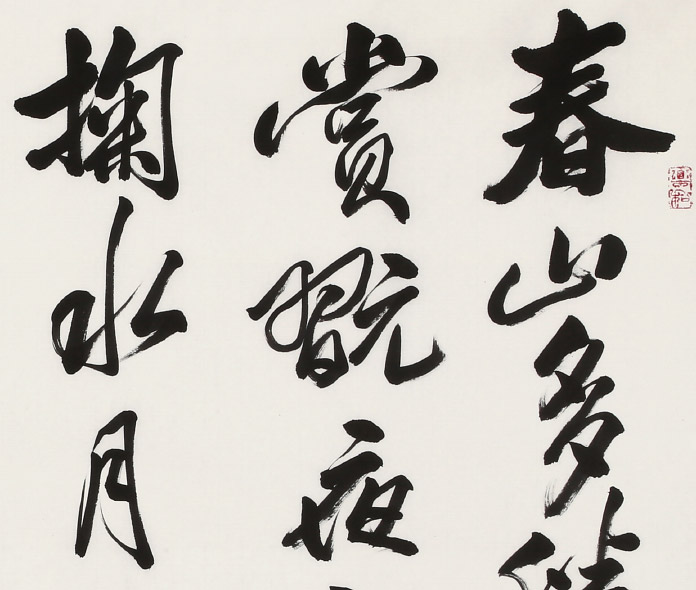 春山多
賞翫夜
掬水月